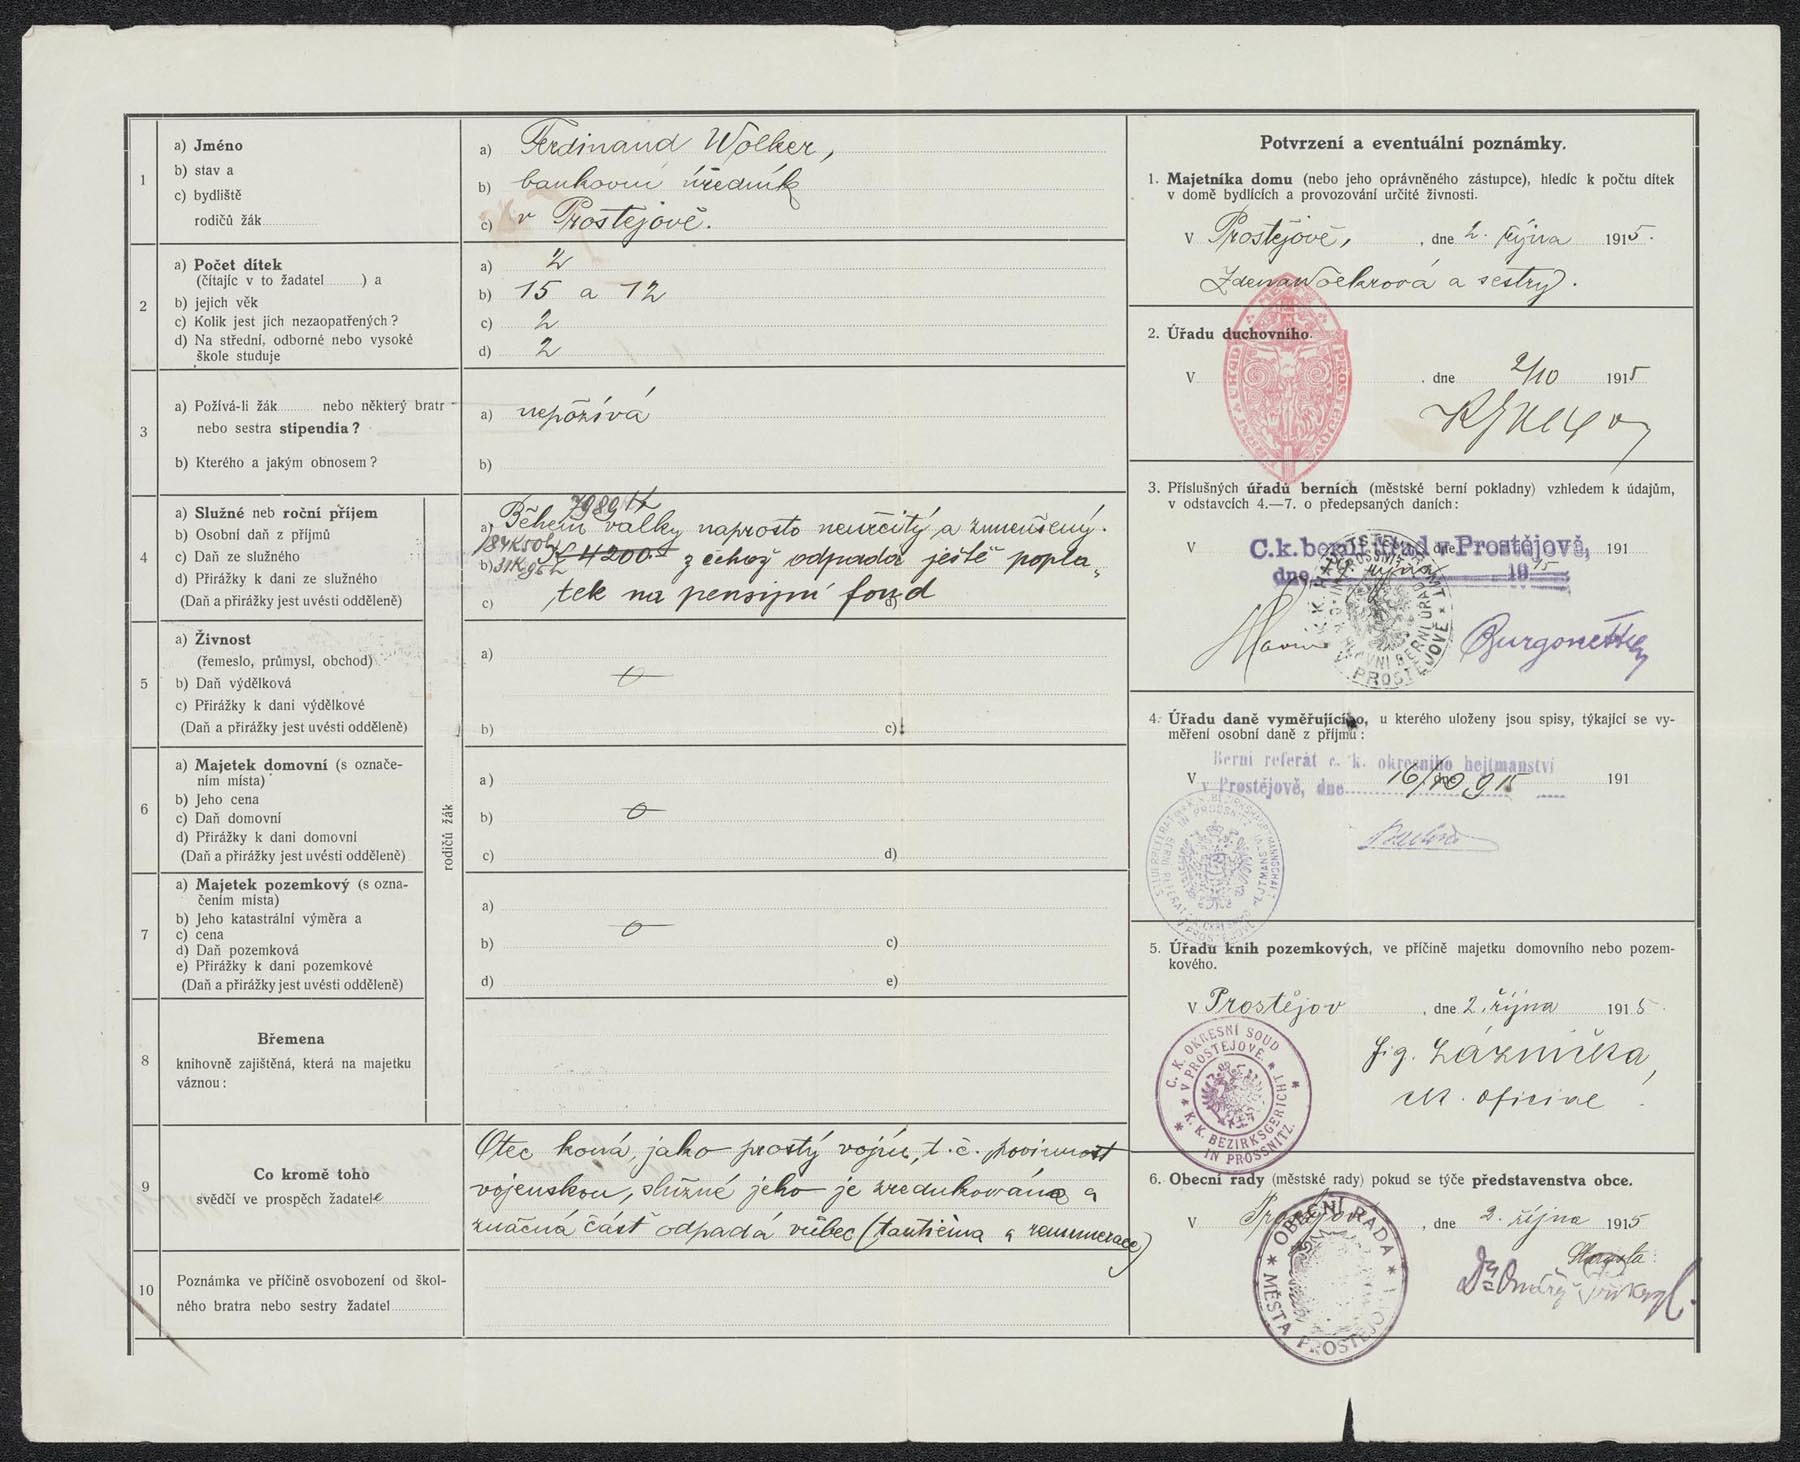 1
a) Jméno
b) stav a
c) bydliště
rodičů žák
a) Ferdinand Wolker,
b) bankovní úředník
c) v Prostějově.
2
a) Počet dítek
(čítajíc v to žadatel ) a
b) jejich věk
c) Kolik jest jich nezaopatřených?
d) Na střední, odborné nebo vysoké
škole studuje
a) 2
b) 15 a 12
c) 2
d) 2
3
a) Požívá-li žák nebo některý bratr
nebo sestra stipendia?
b) Kterého a jakým obnosem?
a) nepožívá
b)
4
a) Služné neb roční příjem
b) Osobní daň z příjmů
c) Daň ze služného
d) Přirážky k dani ze služného
(Daň a přirážky jest uvésti odděleně)
7989 K
a) Během války naprosto neurčitý a zmenšený.
184K50h
b) 31K 95h K 4200 z čehož odpadá ještě popla-
c) tek na pensijní fond d)
5
a) Živnost
(řemeslo, průmysl, obchod)
b) Daň výdělková
c) Přirážky k dani výdělkové
(Daň a přirážky jest uvésti odděleně)
a)
0
b) c)
6
a) Majetek domovní (s označe-
ním místa)
b) Jeho cena
c) Daň domovní
d) Přirážky k dani domovní
(Daň a přirážky jest uvésti odděleně)
rodičů žák
a)
b) 0
c) d)
7
a) Majetek pozemkový (s ozna-
čením místa)
b) Jeho katastrální výměra a
c) cena
d) Daň pozemková
e) Přirážky k dani pozemkové
(Daň a přirážky jest uvésti odděleně)
a)
0
b) c)
d) e)
8
Břemena
knihovně zajištěná, která na majetku
váznou:
9
Co kromě toho
svědčí ve prospěch žadatele
Otec koná, jako prostý vojín, t. č. povinnost
vojenskou, služné jeho je zredukováno a
značná část odpadá vůbec (tantiéma a remunerace)
10
Poznámka ve příčině osvobození od škol-
ného bratra nebo sestry žadatel
Potvrzení a eventuální poznámky.
1. Majetníka domu (nebo jeho oprávněného zástupce), hledíc k počtu dítek
v domě bydlících a provozování určité živnosti.
V Prostějově, , dne 2. října 1915.
Zdena Wolkrová a sestry.
2. Úřadu duchovního.
V , dne 2/10 1915
3. Příslušných úřadů berních (městské berní pokladny) vzhledem k údajům,
v odstavcích 4.—7. o předepsaných daních:
V dne 191
C.k. berní úřad v Prostějově,
dne října 1915
4. Úřadu daně vyměřujícího, u kterého uloženy jsou spisy, týkající se vy-
měření osobní daně z příjmů:
Berní referát c. k. okresního hejtmanství
v Prostějově, dne
V dne 16/10 915 191
5. Úřadu knih pozemkových, ve příčině majetku domovního nebo pozem-
kového.
V Prostějov , dne 2. října 1915
C. K. OKRESNÍ SOUD
V PROSTĚJOVĚ.
K. K. BEZIRKSGERICHT
IN PROSSNITZ.
oficial
6. Obecní rady (městské rady) pokud se týče představenstva obce.
V Prostějov , dne 2. října 1915
OBECNÍ RADA
MĚSTA PROSTĚJOVA
Dr. Ondřej Přikryl.